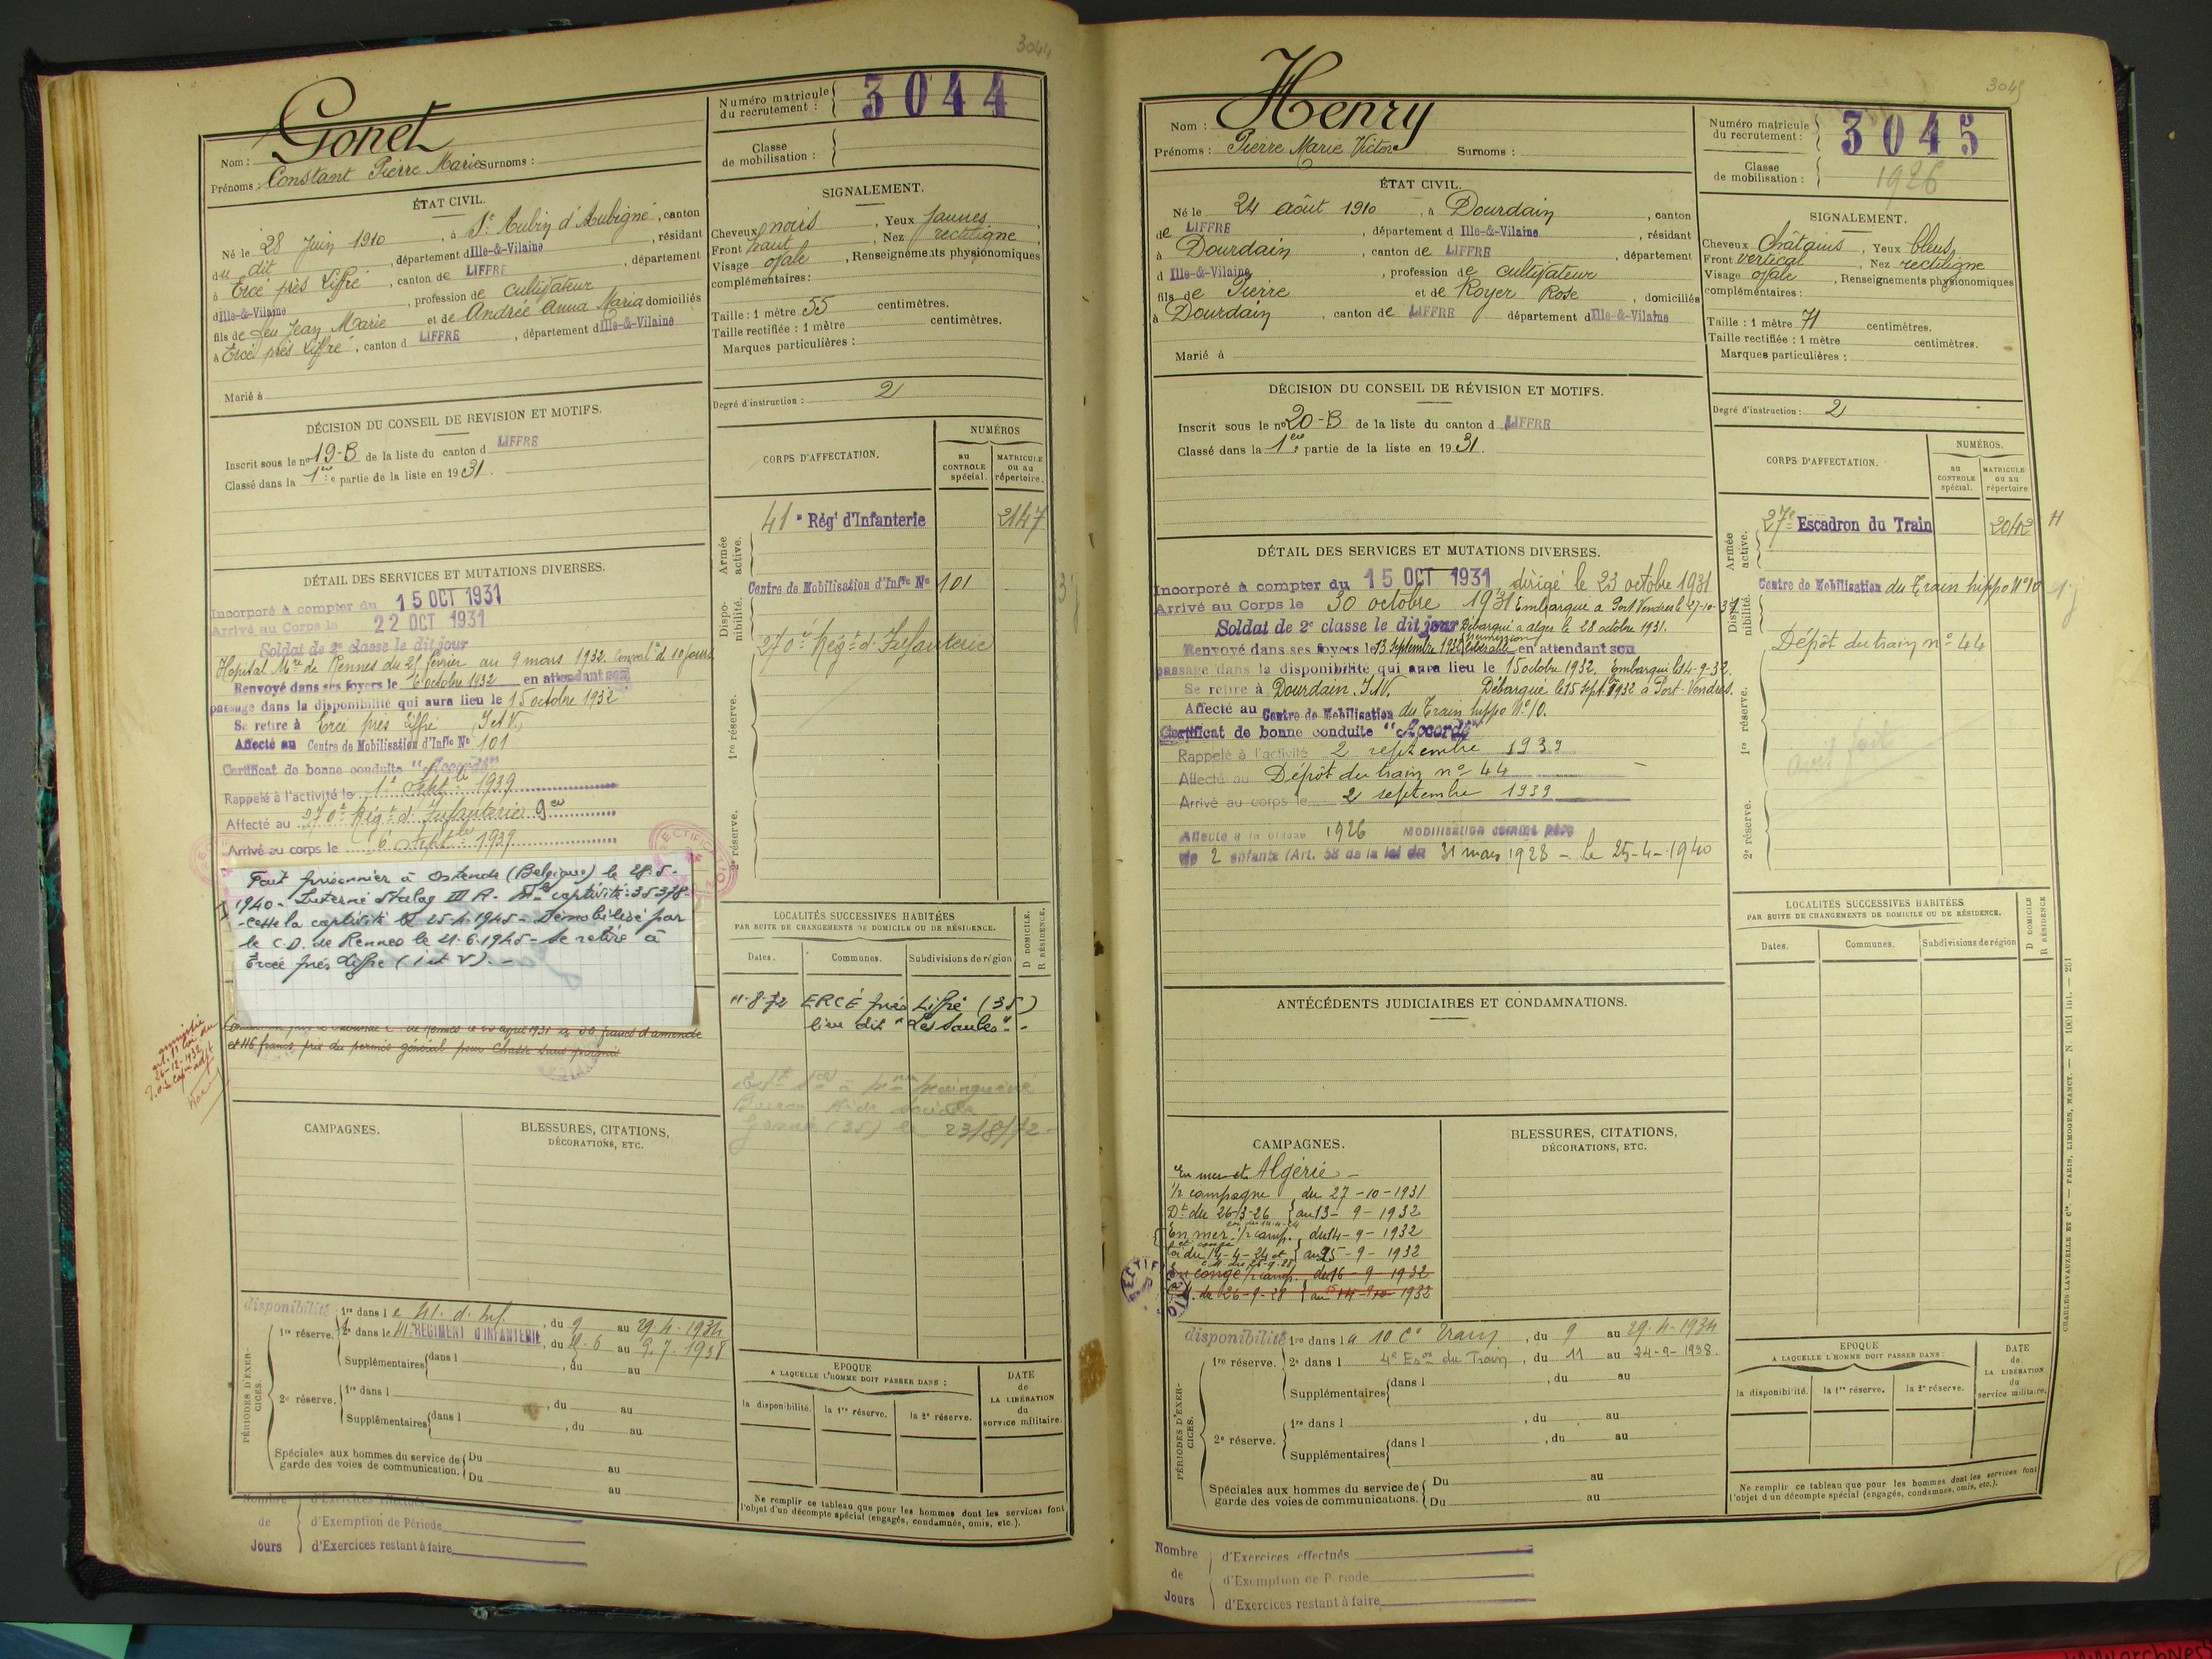 3044
Gonet
Nom :
Prénoms : Constant Pierre Marie Surnoms :
Numéro matricule du recrutement : 3044
Classe de mobilisation :
ÉTAT CIVIL.
Né le 28 Juin 1910, à St Aubin d'Aubigné, canton
du dit, département d Ille-&-Vilaine, résidant
à Ercé près Liffré, canton de LIFFRE, département
d Ille-&-Vilaine, profession de cultivateur
fils de feu Jean Marie et de Andrée Anna Maria domiciliés
à Ercé près Liffré, canton d LIFFRE, département d Ille-&-Vilaine
Marié à
SIGNALEMENT.
Cheveux noirs, Yeux jaunes
Front haut, Nez rectiligne,
Visage ovale, Renseignements physionomiques
complémentaires :
Taille : 1 mètre 55 centimètres.
Taille rectifiée : 1 mètre centimètres.
Marques particulières :
Degré d'instruction : 2
DÉCISION DU CONSEIL DE REVISION ET MOTIFS.
Inscrit sous le no 19-B de la liste du canton d LIFFRE
Classé dans la 1ere partie de la liste en 1931.
CORPS D'AFFECTATION.
NUMÉROS
au CONTROLE spécial.
MATRICULE ou au répertoire.
Armée active.
41e Régt d'Infanterie 2147
Disponibilité.
Centre de Mobilisation d'Inffie No 101
270e Régt d'Infanterie
1re réserve.
2e réserve.
DÉTAIL DES SERVICES ET MUTATIONS DIVERSES.
Incorporé à compter du 15 OCT 1931
Arrivé au Corps le 22 OCT 1931
Soldat de 2e classe le dit jour
Hopital Mre de Rennes du 21 février au 9 mars 1932. Conval ce de 10 jours
Renvoyé dans ses foyers le 6 octobre 1932 en attendant son
passage dans la disponibilité qui aura lieu le 15 octobre 1932
Se retire à Ercé près Liffré (I et V.)
Affecté au Centre de Mobilisation d'Inffie No 101
Certificat de bonne conduite "Accordé"
Rappelé à l'activité le 1er Septbre 1939
Affecté au 270e Régt d'Infanterie
Arrivé au corps le 6 Septbre 1939
Fait prisonnier à Ostende (Belgique) le 28.5.
1940 - Interné Stalag III A - Mle captivité : 35378
- Cesse la captivité le 25.4.1945 - Démobilisé par
le C.D. de Rennes le 21.6.1945 - Se retire à
Ercée près Liffre (I et V). -
de Rennes le avril 1931 à 50 francs d'amende
et 116 francs prix du permis général pour chasse sans permis
amnistie
26-12-1932
LOCALITÉS SUCCESSIVES HABITÉES
PAR SUITE DE CHANGEMENTS DE DOMICILE OU DE RÉSIDENCE.
D DOMICILE.
R RÉSIDENCE.
Dates. Communes. Subdivisions de région
11-8-72 ERCÉ près Liffré (35)
lieu dit "Les Saules" -
Bureau Aide Sociale
(35) le 23/8/72
CAMPAGNES.
BLESSURES, CITATIONS,
DÉCORATIONS, ETC.
PÉRIODES D'EXERCICES.
disponibilité 1re dans le 41. d. inf., du 9 au 29.4.1934
1re réserve. 2e dans le 41e RÉGIMENT D'INFANTERIE, du 6 au 9.7.1938
Supplémentaires dans l , du au
2e réserve. 1re dans l , du au
Supplémentaires dans l , du au
Spéciales aux hommes du service de garde des voies de communication. Du au
Du au
Nombre de Jours
d'Exercices effectués
d'Exemption de Période
d'Exercices restant à faire
EPOQUE
A LAQUELLE L'HOMME DOIT PASSER DANS :
la disponibilité. la 1re réserve. la 2e réserve.
DATE de LA LIBÉRATION du service militaire.
Ne remplir ce tableau que pour les hommes dont les services font
l'objet d'un décompte spécial (engagés, condamnés, omis, etc.).
3045
Henry
Nom :
Prénoms : Pierre Marie Victor Surnoms :
Numéro matricule du recrutement : 3045
Classe de mobilisation : 1926
ÉTAT CIVIL.
Né le 24 août 1910, à Dourdain, canton
de LIFFRE, département d Ille-&-Vilaine, résidant
à Dourdain, canton de LIFFRE, département
d Ille-&-Vilaine, profession de cultivateur
fils de Pierre et de Royer Rose, domiciliés
à Dourdain, canton de LIFFRE département d Ille-&-Vilaine
Marié à
SIGNALEMENT.
Cheveux châtains, Yeux bleus
Front vertical, Nez rectiligne
Visage ovale, Renseignements physionomiques
complémentaires :
Taille : 1 mètre 71 centimètres.
Taille rectifiée : 1 mètre centimètres.
Marques particulières :
Degré d'instruction : 2
DÉCISION DU CONSEIL DE RÉVISION ET MOTIFS.
Inscrit sous le no 20-B de la liste du canton d LIFFRE
Classé dans la 1ere partie de la liste en 1931.
CORPS D'AFFECTATION.
NUMÉROS.
au CONTROLE spécial.
MATRICULE ou au répertoire
Armée active.
27e Escadron du Train 2042
Disponibilité.
Centre de Mobilisation du Train hippo No 10
Dépôt du train no 44
1re réserve.
2e réserve.
DÉTAIL DES SERVICES ET MUTATIONS DIVERSES.
Incorporé à compter du 15 OCT 1931 dirigé le 23 octobre 1931
Arrivé au Corps le 30 octobre 1931 Embarqué à Port Vendres le 27-10-31
Soldat de 2e classe le dit jour Débarqué à Alger le 28 octobre 1931.
Renvoyé dans ses foyers le 13 Septembre 1932 libérable en attendant son
passage dans la disponibilité qui aura lieu le 15 octobre 1932. Embarqué le 14-9-32.
Se retire à Dourdain. I&V. Débarqué le 15 Sept. 1932 à Port-Vendres.
Affecté au Centre de Mobilisation du Train hippo No 10.
Certificat de bonne conduite "Accordé"
Rappelé à l'activité 2 septembre 1939
Affecté au Dépôt du train no 44
Arrivé au corps le 2 septembre 1939
Affecté à la classe 1926 MOBILISATION comme père
de 2 enfants (Art. 58 de la loi du 31 mars 1928 - le 25-4-1940
ANTÉCÉDENTS JUDICIAIRES ET CONDAMNATIONS.
LOCALITÉS SUCCESSIVES HABITÉES
PAR SUITE DE CHANGEMENTS DE DOMICILE OU DE RÉSIDENCE.
D DOMICILE
R RÉSIDENCE
Dates. Communes. Subdivisions de région
CAMPAGNES.
BLESSURES, CITATIONS,
DÉCORATIONS, ETC.
En mer et Algérie -
1/2 campagne du 27-10-1931
Dt du 26-3-26 au 13-9-1932
En mer 1/2 camp. du 14-9-1932
Loi du 14-4-24 et au 15-9-1932
En congé 1/2 camp. du 16-9-1932
26-9-28 au 1932
PÉRIODES D'EXERCICES.
disponibilité 1re dans la 10 Cie Train, du 9 au 29.4.1934
1re réserve. 2e dans l 4e Eson du Train, du 11 au 24-9-1938.
Supplémentaires dans l , du au
2e réserve. 1re dans l , du au
Supplémentaires dans l , du au
Spéciales aux hommes du service de garde des voies de communications. Du au
Du au
Nombre de Jours
d'Exercices effectués
d'Exemption de Période
d'Exercices restant à faire
EPOQUE
A LAQUELLE L'HOMME DOIT PASSER DANS :
la disponibilité. la 1re réserve. la 2e réserve.
DATE de LA LIBÉRATION du service militaire.
Ne remplir ce tableau que pour les hommes dont les services font
l'objet d'un décompte spécial (engagés, condamnés, omis, etc.).
CHARLES-LAVAUZELLE ET Cie. — PARIS, LIMOGES, NANCY. — N. 1001 int. — 251